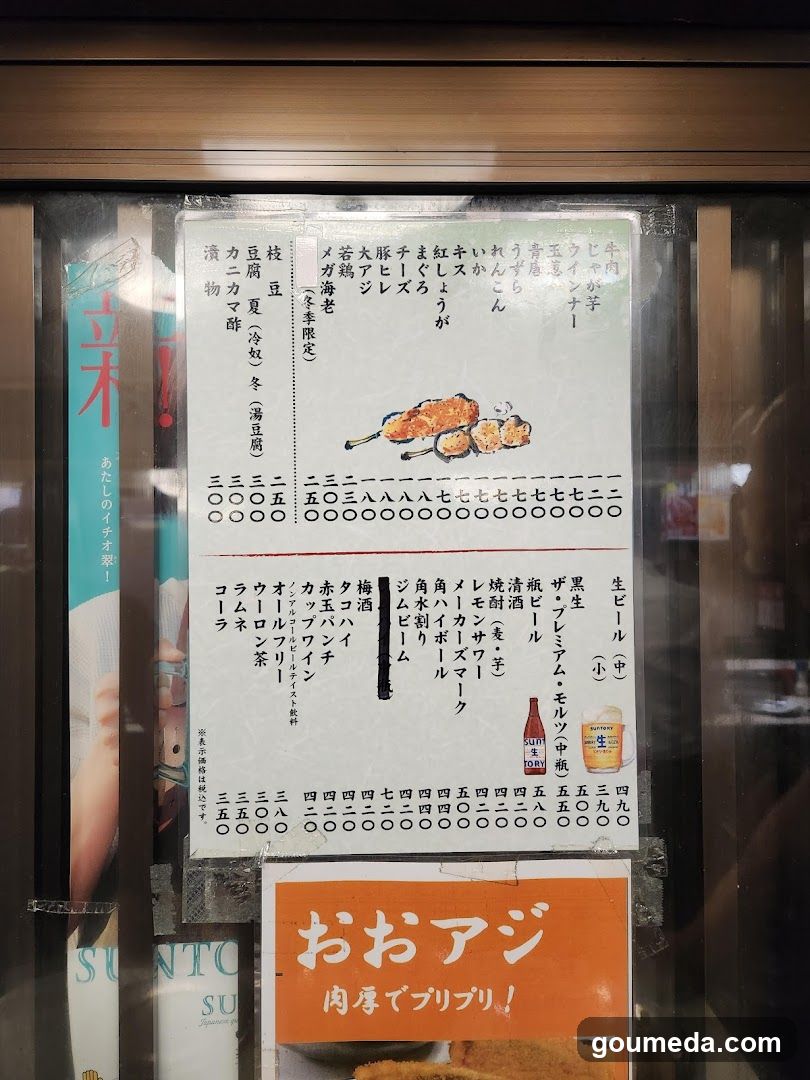 牛肉 一二〇
じゃが芋 一二〇
ウインナー 一七〇
玉葱 一七〇
青唐 一七〇
うずら 一七〇
れんこん 一七〇
いか 一七〇
キス 一七〇
紅しょうが 一七〇
まぐろ 一八〇
チーズ 一八〇
豚ヒレ 一八〇
大アジ 一八〇
若鶏 二三〇
メガ海老 三〇〇
(冬季限定) 二五〇
枝豆 二五〇
豆腐 夏(冷奴) 冬(湯豆腐) 三〇〇
カニカマ酢 三〇〇
漬物 三〇〇
生ビール(中) 四九〇
(小) 三九〇
黒生 五〇〇
ザ・プレミアム・モルツ(中瓶) 五五〇
瓶ビール 五八〇
清酒 四二〇
焼酎(麦・芋) 四二〇
レモンサワー 四二〇
メーカーズマーク 五〇〇
角ハイボール 四四〇
角水割り 四四〇
ジムビーム 四二〇
七二〇
梅酒 四二〇
タコハイ 四二〇
赤玉パンチ 四二〇
カップワイン 四二〇
ノンアルコールビールテイスト飲料
オールフリー 三八〇
ウーロン茶 三〇〇
ラムネ 三五〇
コーラ 三五〇
※表示価格は税込です。
SUNTORY
生
SUNTORY
生
新!
あたしのイチオ翠!
SUNTO
SU
おおアジ
肉厚でプリプリ!
goumeda.com